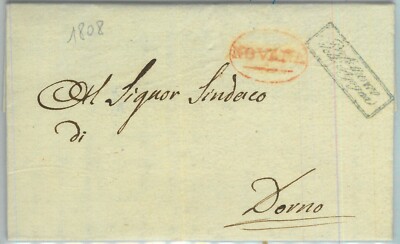 1808
NOVARA
Al Signor Sindaco
di
Dorno